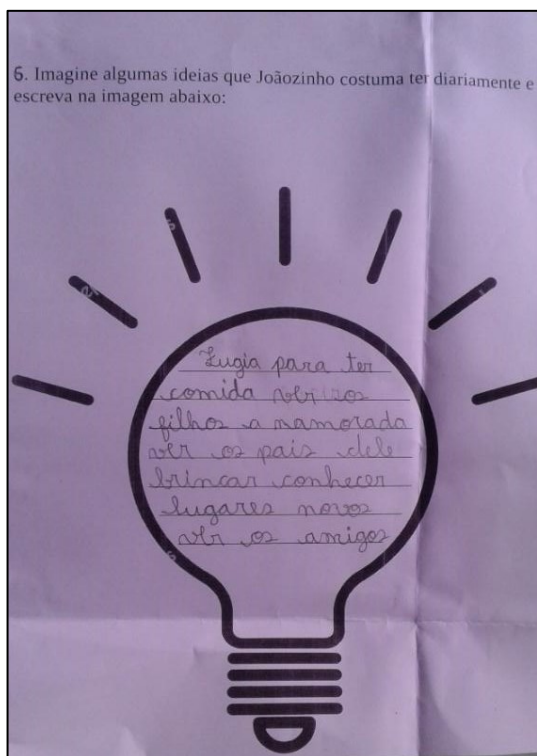 6. Imagine algumas ideias que Joãozinho costuma ter diariamente e
escreva na imagem abaixo:
Fugia para ter
comida ver os
filhos a namorada
ver os pais dele
brincar conhecer
lugares novos
ver os amigos